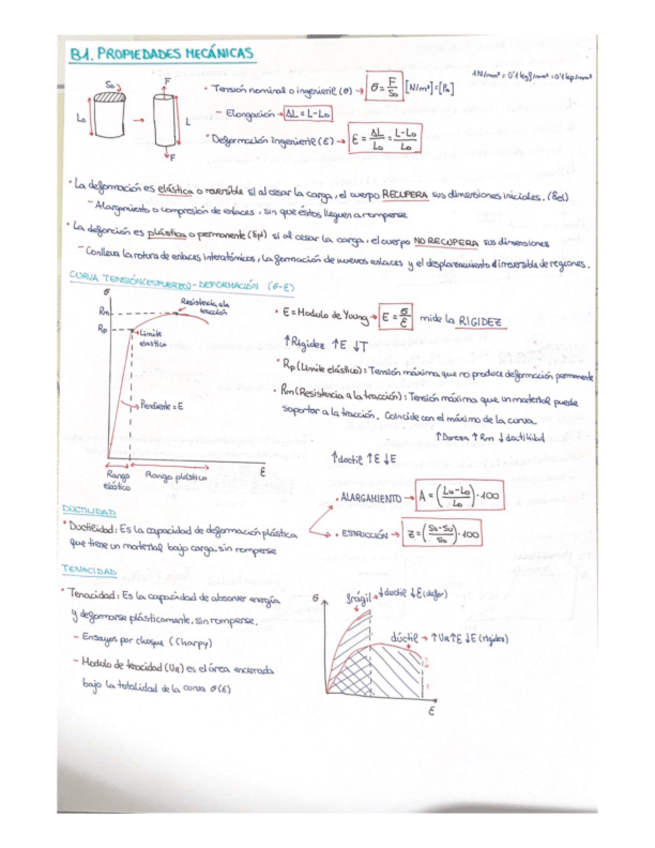 B1. PROPIEDADES MECÁNICAS
S₀ F L₀ L F
· Tensión nominal o ingenieril (σ) → σ = F/S₀ [N/m²] = [Pa]
1N/mm² = 0'1 kgf/mm² = 0'1 kp/mm²
- Elongación → ΔL = L-L₀
· Deformación ingenieril (ε) → ε = ΔL/L₀ = L-L₀/L₀
· La deformación es elástica o reversible si al cesar la carga, el cuerpo RECUPERA sus dimensiones iniciales. (εel)
- Alargamiento o compresión de enlaces, sin que éstos lleguen a romperse
· La deforción es plástica o permanente (εpl) si al cesar la carga, el cuerpo NO RECUPERA sus dimensiones
- Conlleva la rotura de enlaces interatómicos, la formación de nuevos enlaces y el desplazamiento irreversible de regiones.
CURVA TENSIÓN(ESFUERZO)-DEFORMACIÓN (σ-ε)
σ
Resistencia a la tracción
Rm
Rp
Límite elástico
Pendiente = E
ε
Rango elástico
Rango plástico
· E = Modulo de Young → E = σ/ε mide la RIGIDEZ
↑Rigidez ↑E ↓T
· Rp (Límite elástico): Tensión máxima que no produce deformación permanente
· Rm (Resistencia a la tracción): Tensión máxima que un material puede
soportar a la tracción, Coincide con el máximo de la curva.
↑Dureza ↑Rm ↓ductilidad
↑ductil ↑ε ↓E
DUCTILIDAD
· Ductilidad: Es la capacidad de deformación plástica
que tiene un material bajo carga, sin romperse
· ALARGAMIENTO → A = (Lu-L₀/L₀)·100
· ESTRICCIÓN → Z = (S₀-Su/S₀)·100
TENACIDAD
· Tenacidad: Es la capacidad de absorver energía
y deformarse plásticamente, sin romperse.
- Ensayos por choque (Charpy)
- Modulo de tenacidad (UR) es el área encerrada
bajo la totalidad de la curva σ(ε)
σ
frágil → ↓ductil ↓ε (defor)
dúctil → ↑UR ↑ε ↓E (rigidez)
ε